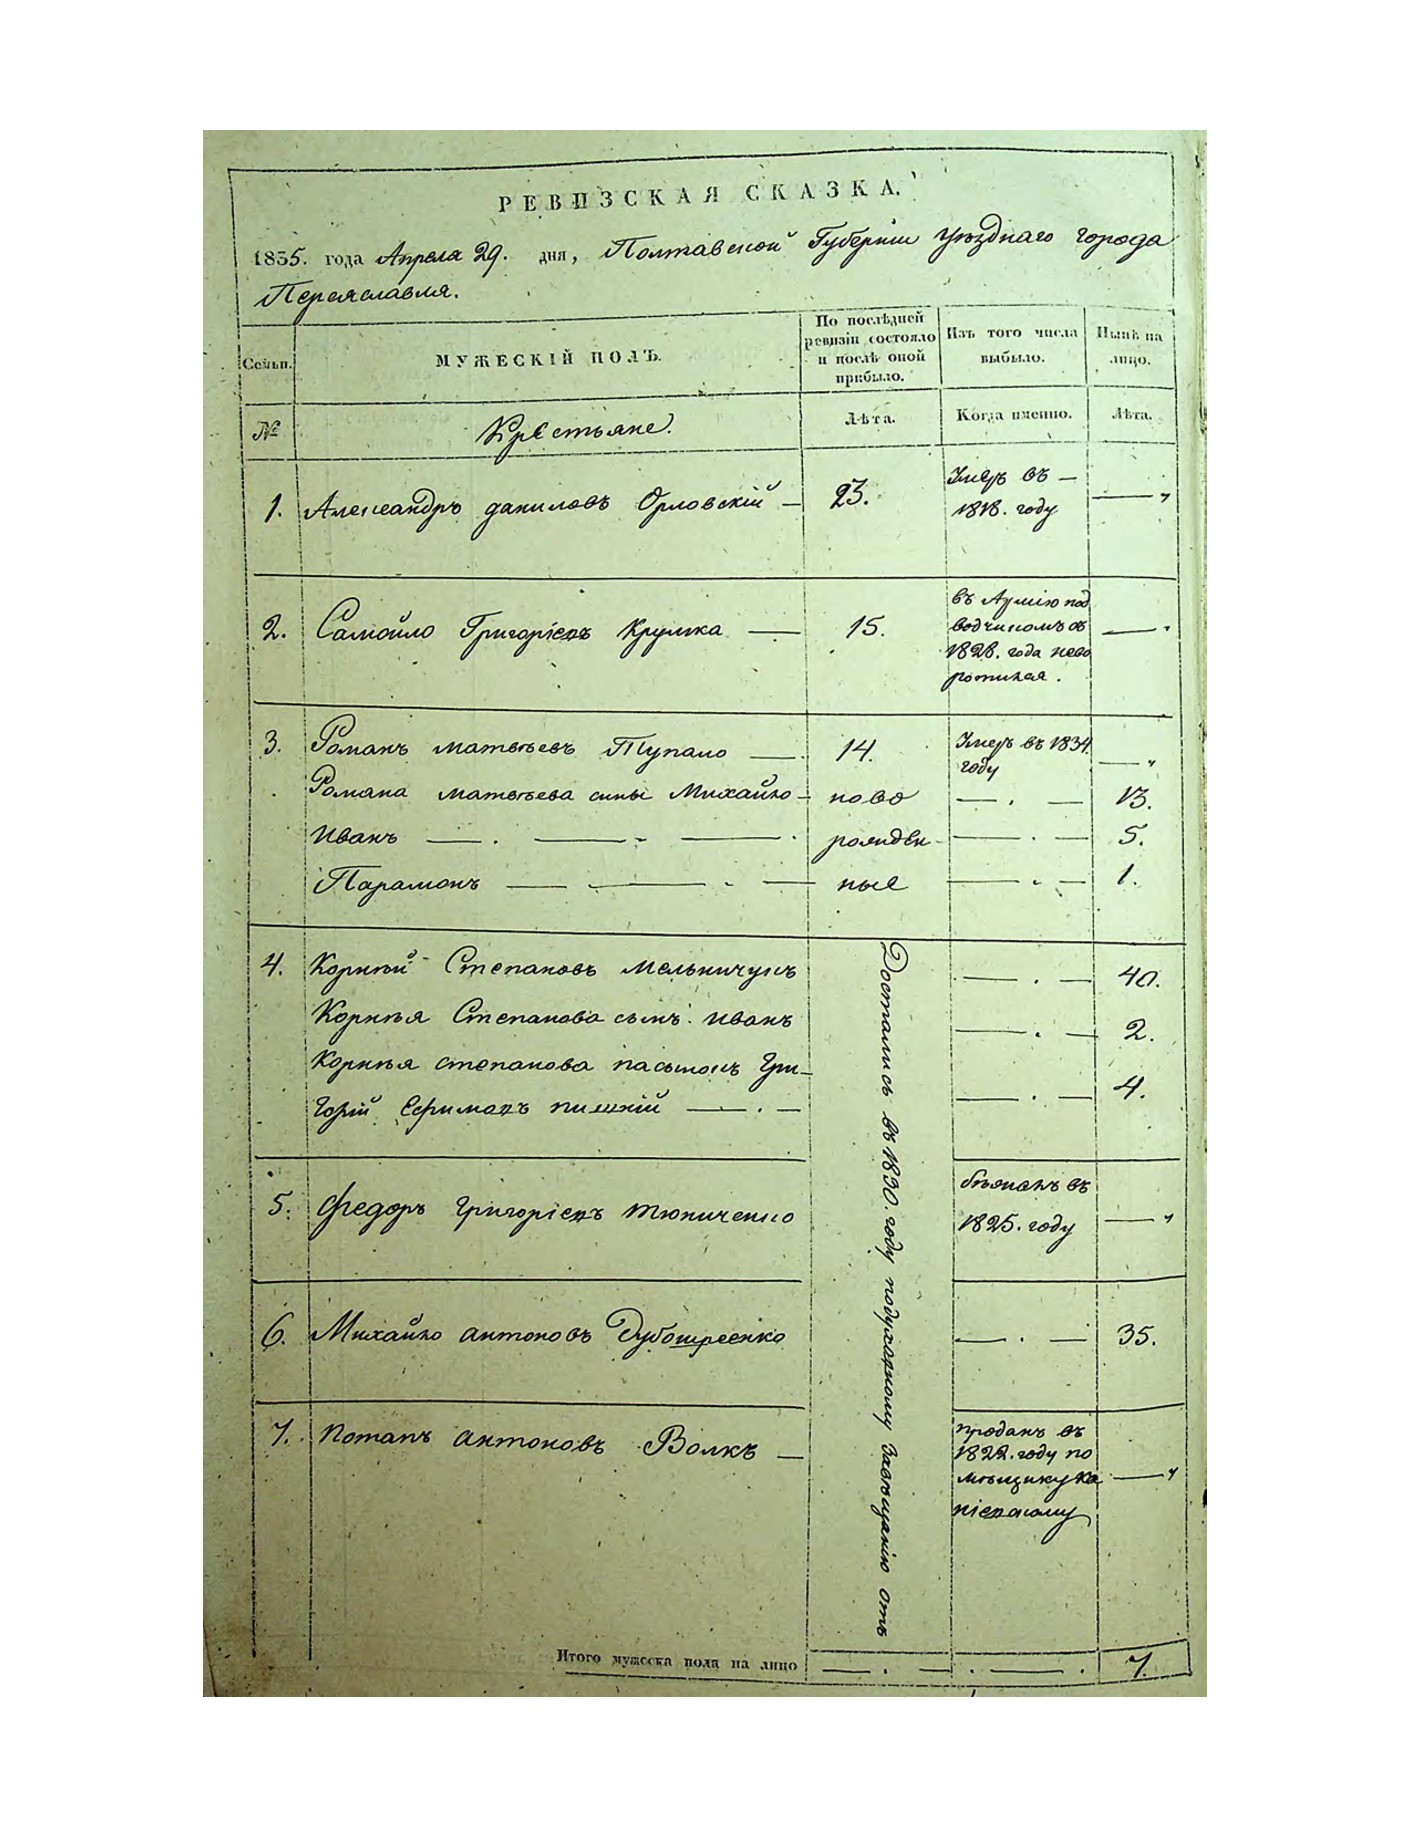 РЕВИЗСКАЯ СКАЗКА.
1835. года Апреля 29. дня, Полтавской Губернiи уѣзднаго города
Переяславля.
Семьи.
МУЖЕСКIЙ ПОЛЪ.
По послѣдней
ревизiи состояло
и послѣ оной
прибыло.
Изъ того числа
выбыло.
Нынѣ на
лицо.
№
Крестьяне.
Лѣта.
Когда именно.
Лѣта.
1. Александръ даниловъ Орловскiй — 23. Умеръ въ — 1818. году — "
2. Самойло Григорiевъ Крупка — 15. въ Армiю под
водчикомъ въ
1828. года нево
ротился.
3. Романъ матвѣевъ Тупало — 14. Умеръ въ 1834.
году — "
Романа матвѣева сины Михайло — ново — . — 13.
Иванъ — . — " — . рожден- — . — 5.
Парамонъ — . — . — ные — . — 1.
4. Корнѣй Степановъ мельничукъ — . — 40.
Корнѣя Степанова сынъ иванъ — . — 2.
Корнѣя степанова пасынокъ Гри-
горiй Ефимовъ — . — — . — 4.
Достались въ 1830. году по духовному завѣщанiю отъ
5. Федоръ григорiевъ тюпиченко бѣжалъ въ
1825. году — "
6. Михайло антоновъ — . — 35.
7. Потапъ антоновъ Волкъ — проданъ въ
1822. году по
мѣщику — "
Итого мужеска пола на лицо — . — . — . 7.